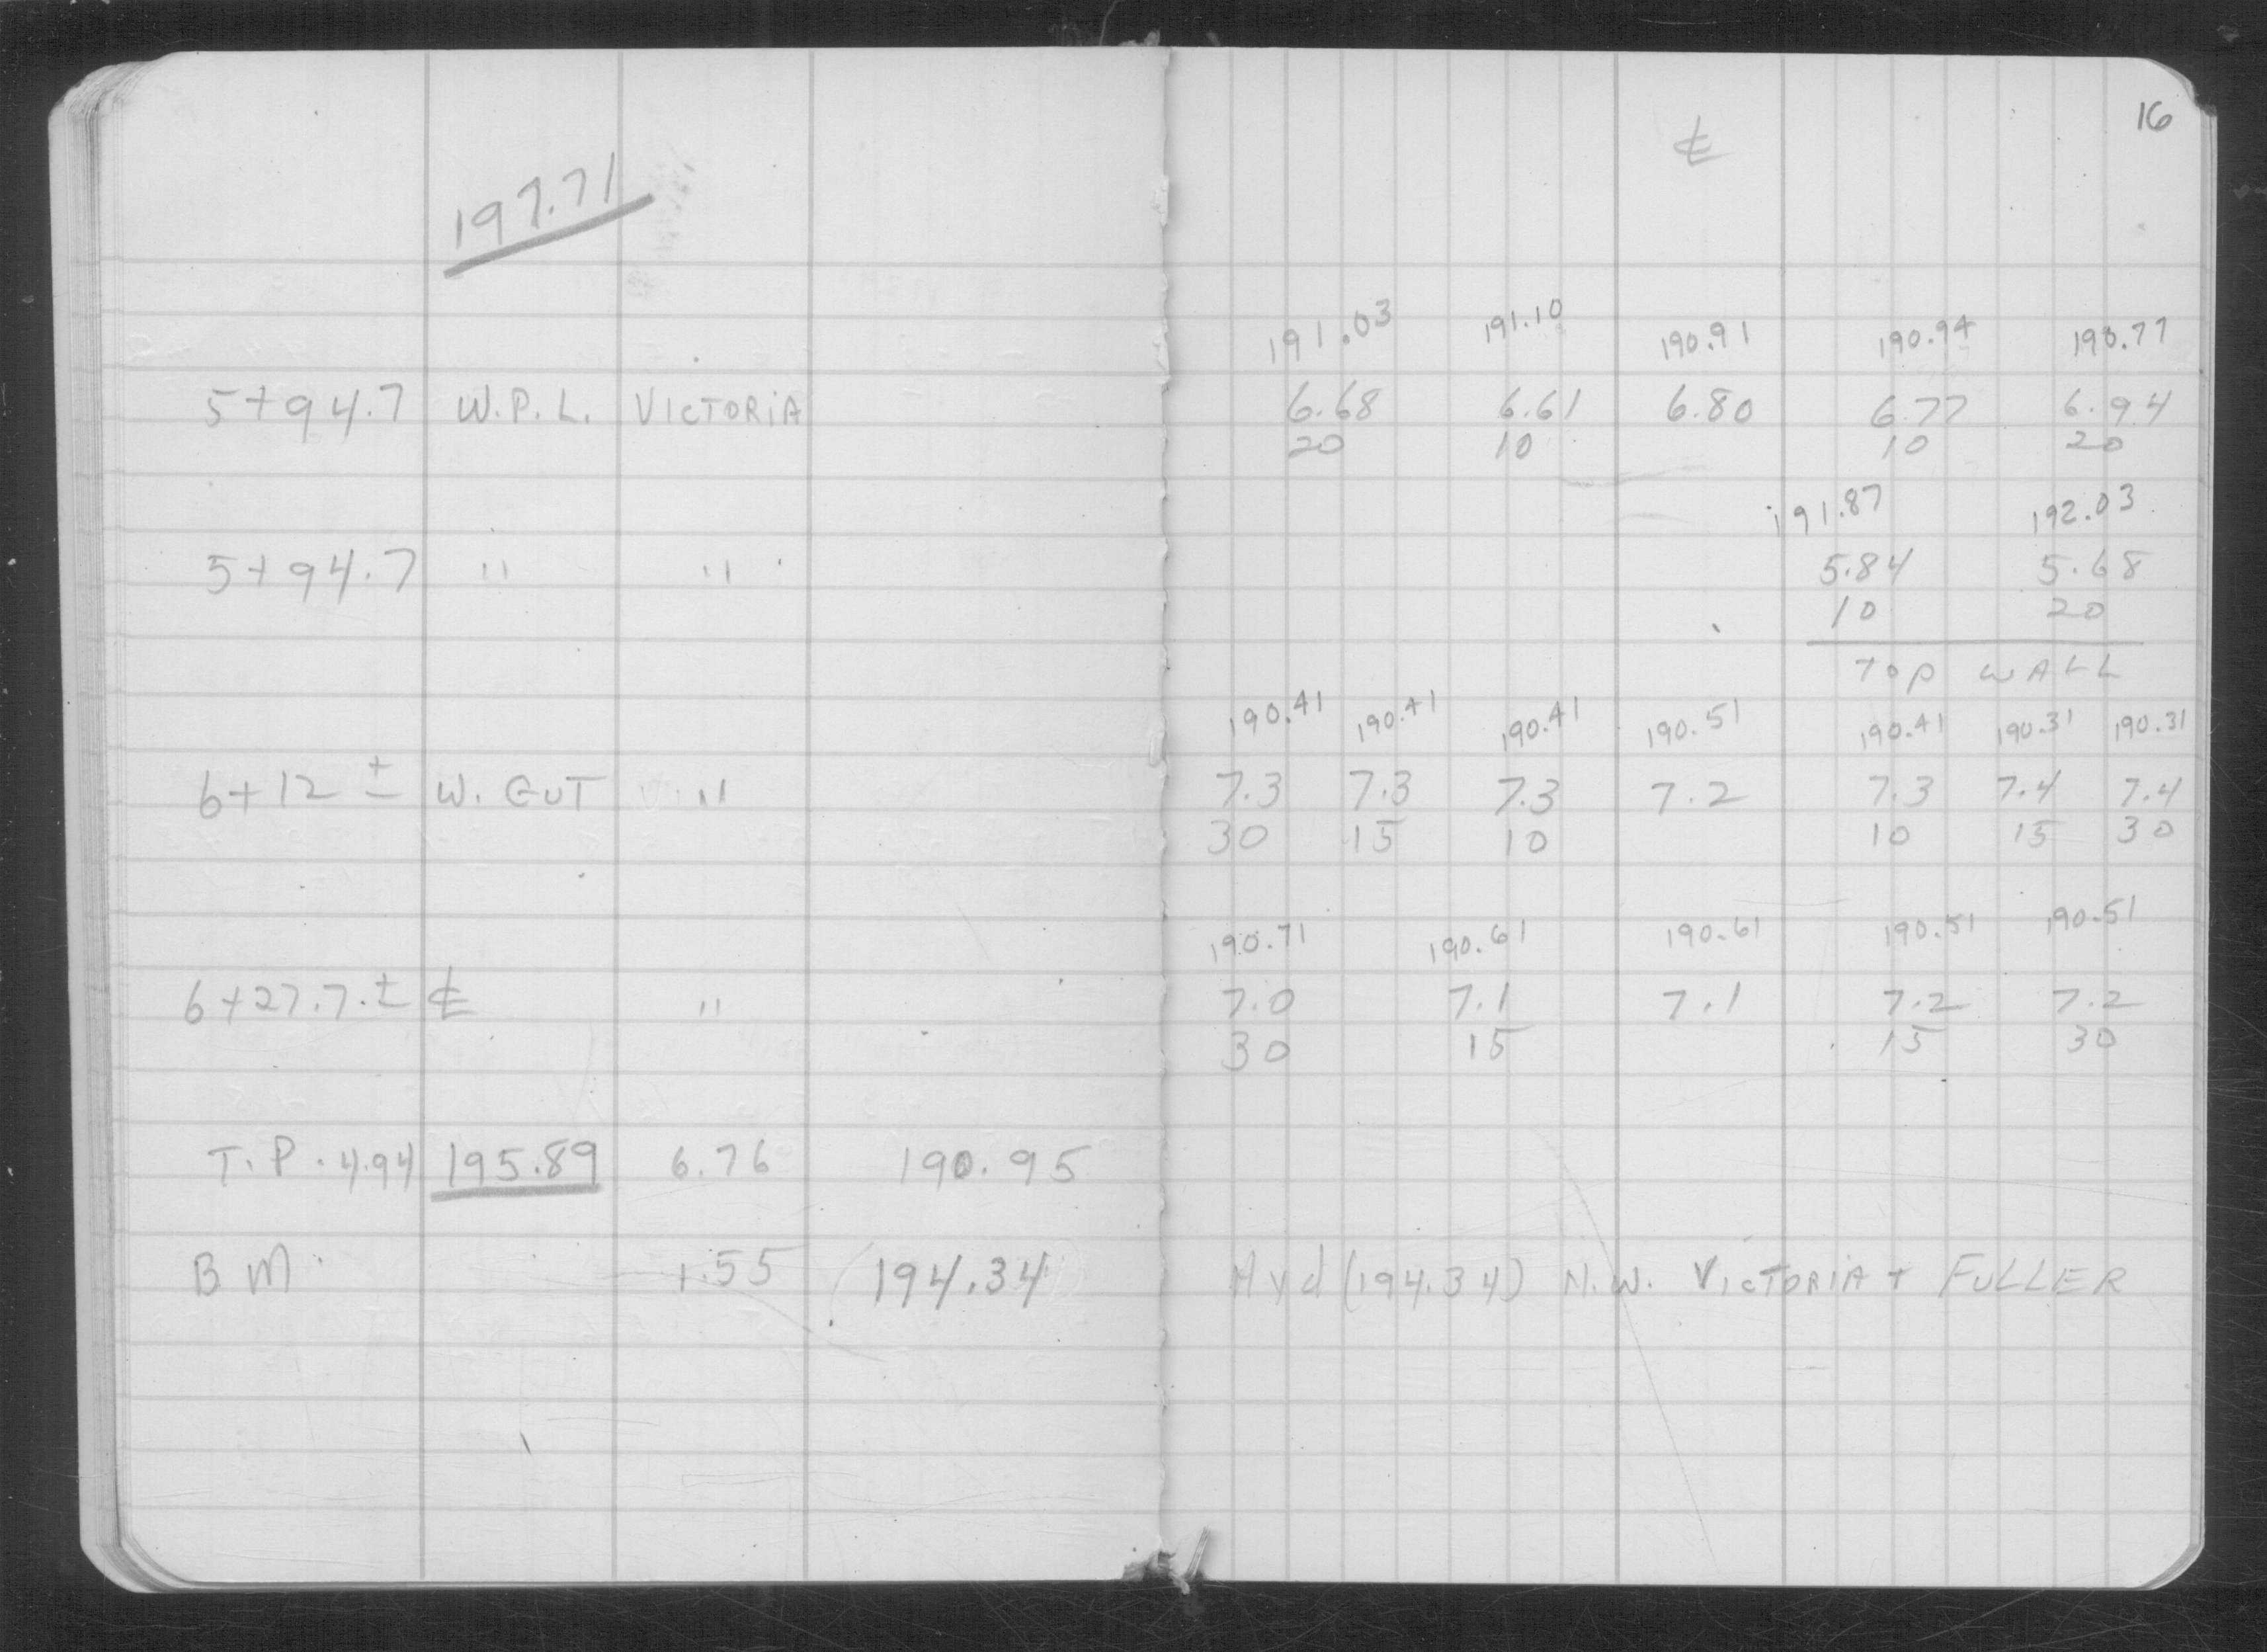 16
℄
197.71
191.03 191.10 190.91 190.94 190.77
5+94.7 W.P.L. VICTORIA 6.68 6.61 6.80 6.77 6.94
20 10 10 20
191.87 192.03
5+94.7 " " 5.84 5.68
10 20
TOP WALL
190.41 190.41 190.41 190.51 190.41 190.31 190.31
6+12 ± W. GUT " 7.3 7.3 7.3 7.2 7.3 7.4 7.4
30 15 10 10 15 30
190.71 190.61 190.61 190.51 190.51
6+27.7.± ℄ " 7.0 7.1 7.1 7.2 7.2
30 15 15 30
T.P. 4.94 195.89 6.76 190.95
B M. 1.55 (194.34) Hyd (194.34) N.W. VICTORIA + FULLER